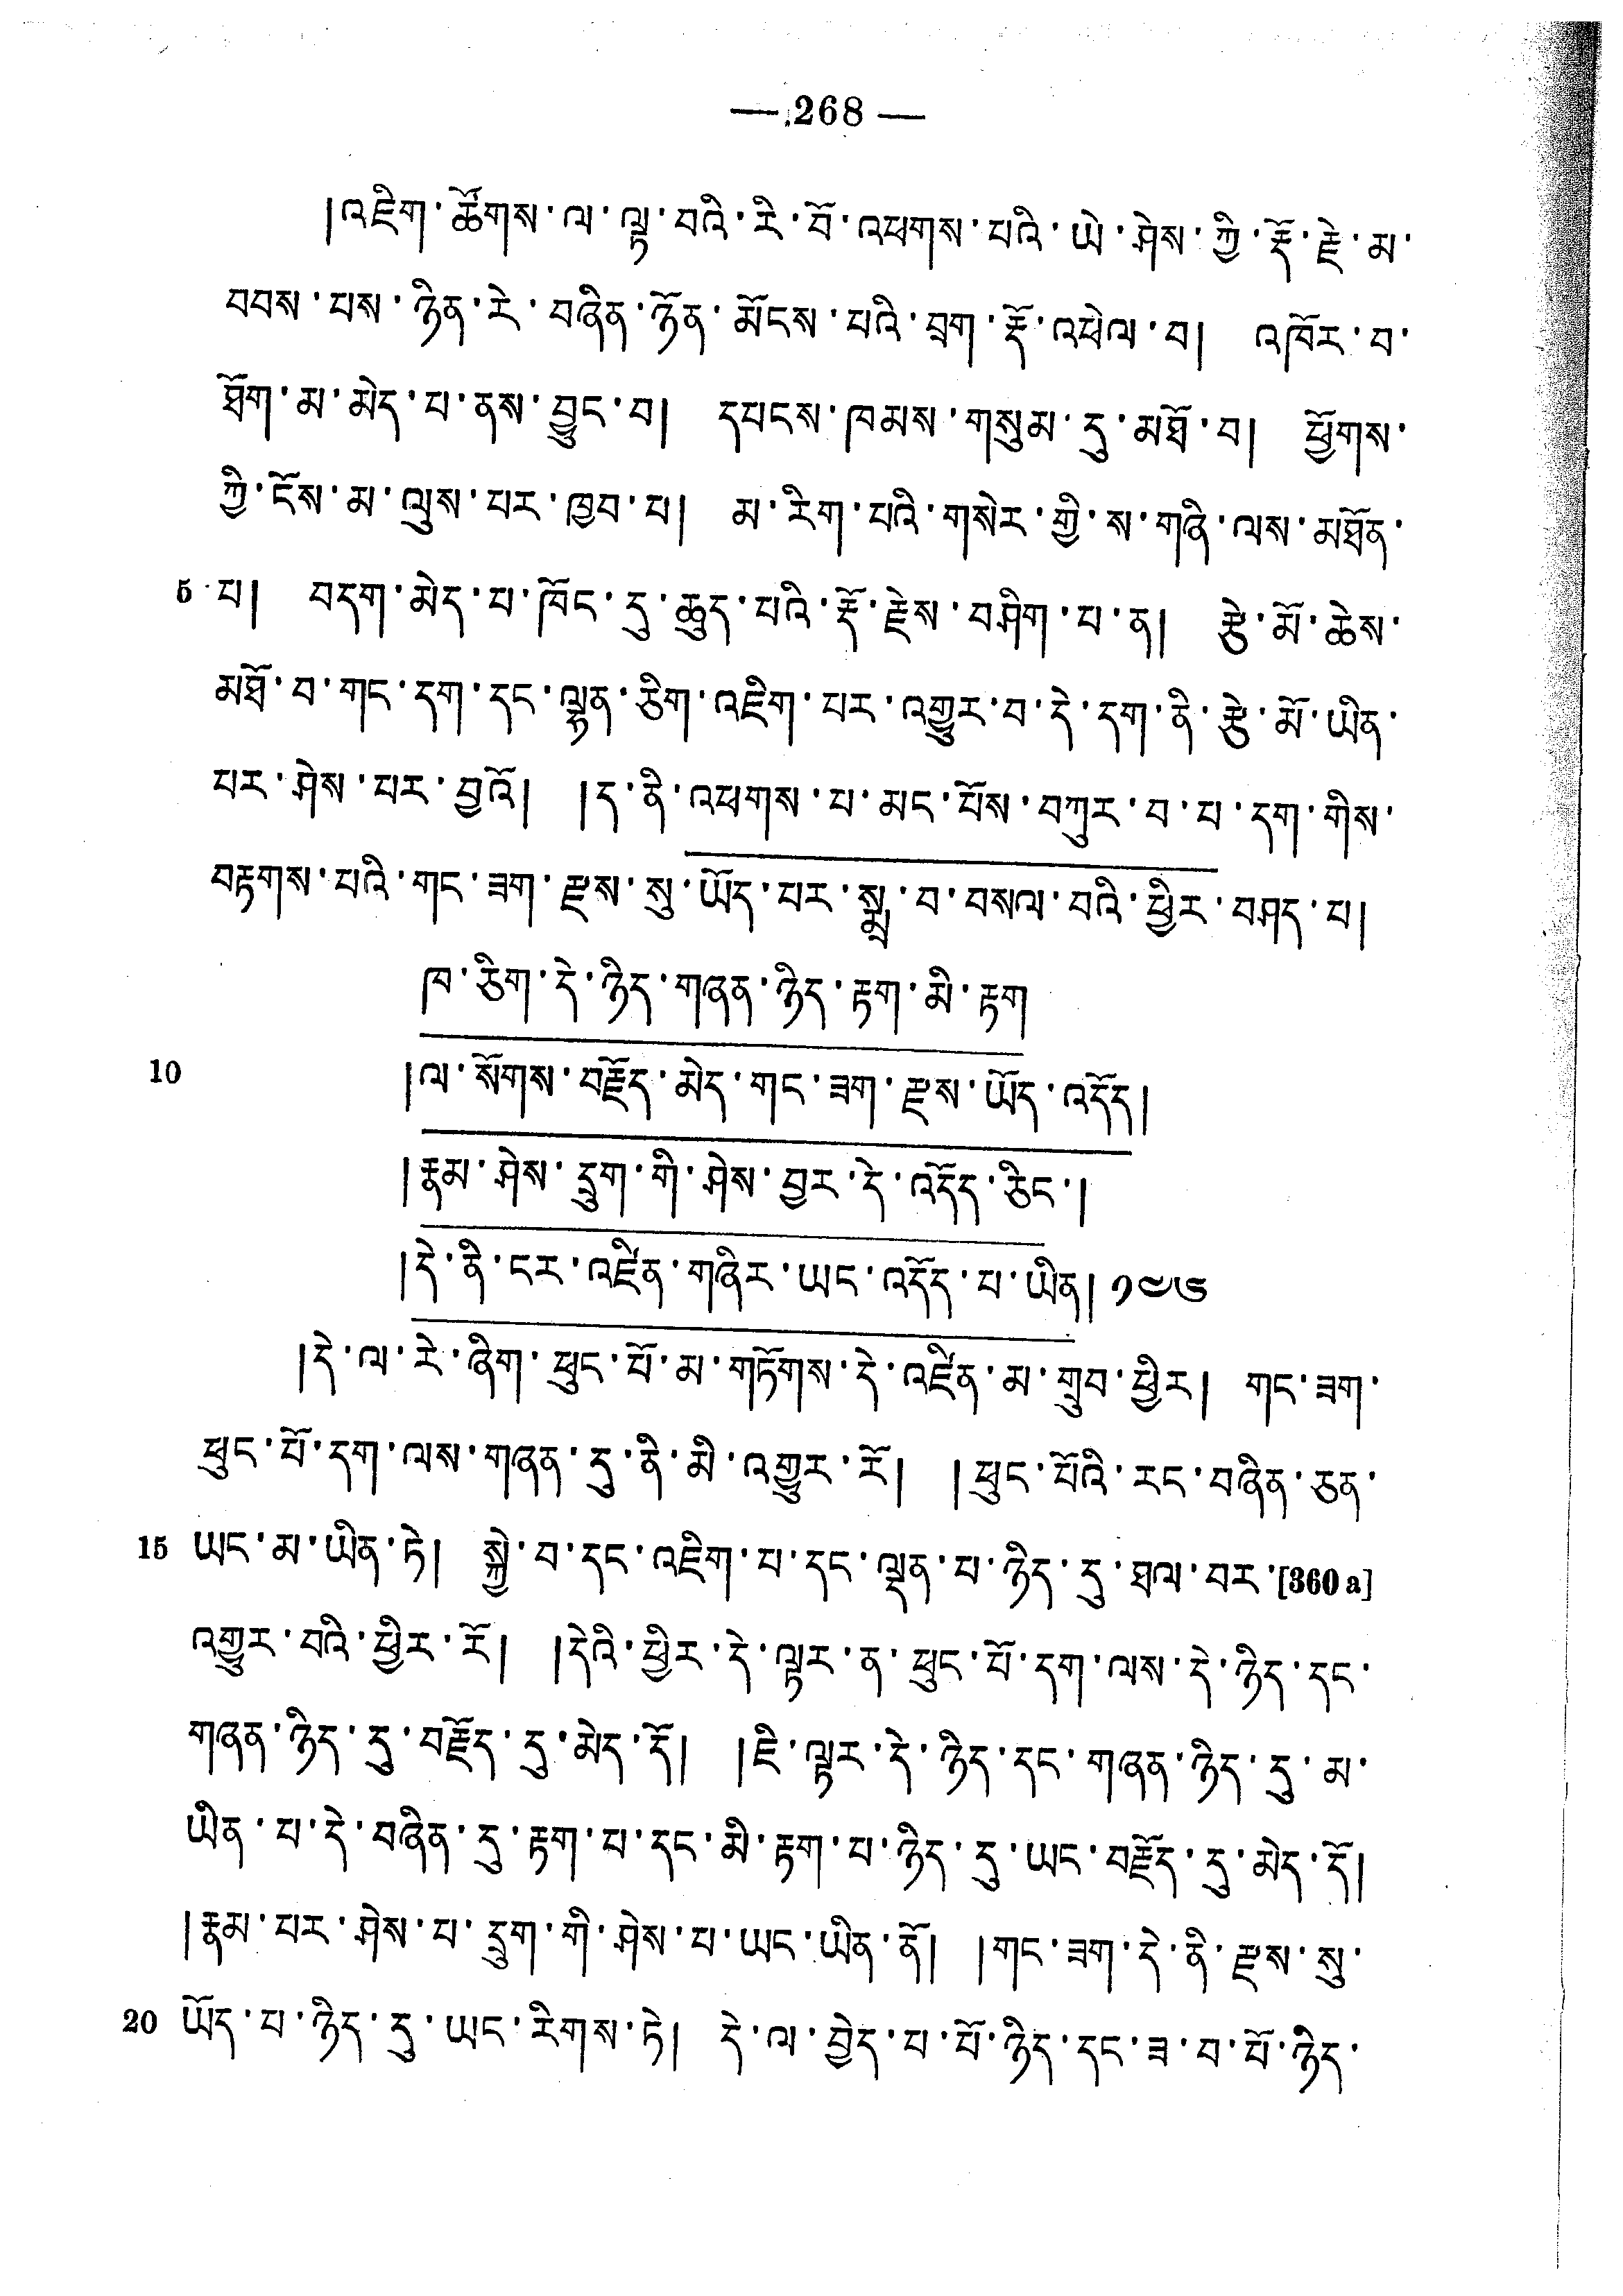 — 268 —
།འཇིག་ཚོགས་ལ་ལྟ་བའི་རི་བོ་འཕགས་པའི་ཡེ་ཤེས་ཀྱི་རྡོ་རྗེ་མ་
བབས་པས་ཉིན་རེ་བཞིན་ཉོན་མོངས་པའི་བྲག་རྡོ་འཕེལ་བ། འཁོར་བ་
ཐོག་མ་མེད་པ་ནས་བྱུང་བ། དཔངས་ཁམས་གསུམ་དུ་མཐོ་བ། ཕྱོགས་
ཀྱི་ངོས་མ་ལུས་པར་ཁྱབ་པ། མ་རིག་པའི་གསེར་གྱི་ས་གཞི་ལས་མཐོན་
5 པ། བདག་མེད་པ་ཁོང་དུ་ཆུད་པའི་རྡོ་རྗེས་བཤིག་པ་ན། རྩེ་མོ་ཆེས་
མཐོ་བ་གང་དག་དང་ལྷན་ཅིག་འཇིག་པར་འགྱུར་བ་དེ་དག་ནི་རྩེ་མོ་ཡིན་
པར་ཤེས་པར་བྱའོ། །ད་ནི་འཕགས་པ་མང་པོས་བཀུར་བ་པ་དག་གིས་
བརྟགས་པའི་གང་ཟག་རྫས་སུ་ཡོད་པར་སྨྲ་བ་བསལ་བའི་ཕྱིར་བཤད་པ།
ཁ་ཅིག་དེ་ཉིད་གཞན་ཉིད་རྟག་མི་རྟག
10 །ལ་སོགས་བརྗོད་མེད་གང་ཟག་རྫས་ཡོད་འདོད།
།རྣམ་ཤེས་དྲུག་གི་ཤེས་བྱར་དེ་འདོད་ཅིང་།
།དེ་ནི་ངར་འཛིན་གཞིར་ཡང་འདོད་པ་ཡིན། ༡༤༦
།དེ་ལ་རེ་ཞིག་ཕུང་པོ་མ་གཏོགས་དེ་འཛིན་མ་གྲུབ་ཕྱིར། གང་ཟག་
ཕུང་པོ་དག་ལས་གཞན་དུ་ནི་མི་འགྱུར་རོ། །ཕུང་པོའི་རང་བཞིན་ཅན་
15 ཡང་མ་ཡིན་ཏེ། སྐྱེ་བ་དང་འཇིག་པ་དང་ལྡན་པ་ཉིད་དུ་ཐལ་བར་[360 a]
འགྱུར་བའི་ཕྱིར་རོ། །དེའི་ཕྱིར་དེ་ལྟར་ན་ཕུང་པོ་དག་ལས་དེ་ཉིད་དང་
གཞན་ཉིད་དུ་བརྗོད་དུ་མེད་དོ། །ཇི་ལྟར་དེ་ཉིད་དང་གཞན་ཉིད་དུ་མ་
ཡིན་པ་དེ་བཞིན་དུ་རྟག་པ་དང་མི་རྟག་པ་ཉིད་དུ་ཡང་བརྗོད་དུ་མེད་དོ།
།རྣམ་པར་ཤེས་པ་དྲུག་གི་ཤེས་པ་ཡང་ཡིན་ནོ། །གང་ཟག་དེ་ནི་རྫས་སུ་
20 ཡོད་པ་ཉིད་དུ་ཡང་རིགས་ཏེ། དེ་ལ་བྱེད་པ་པོ་ཉིད་དང་ཟ་བ་པོ་ཉིད་